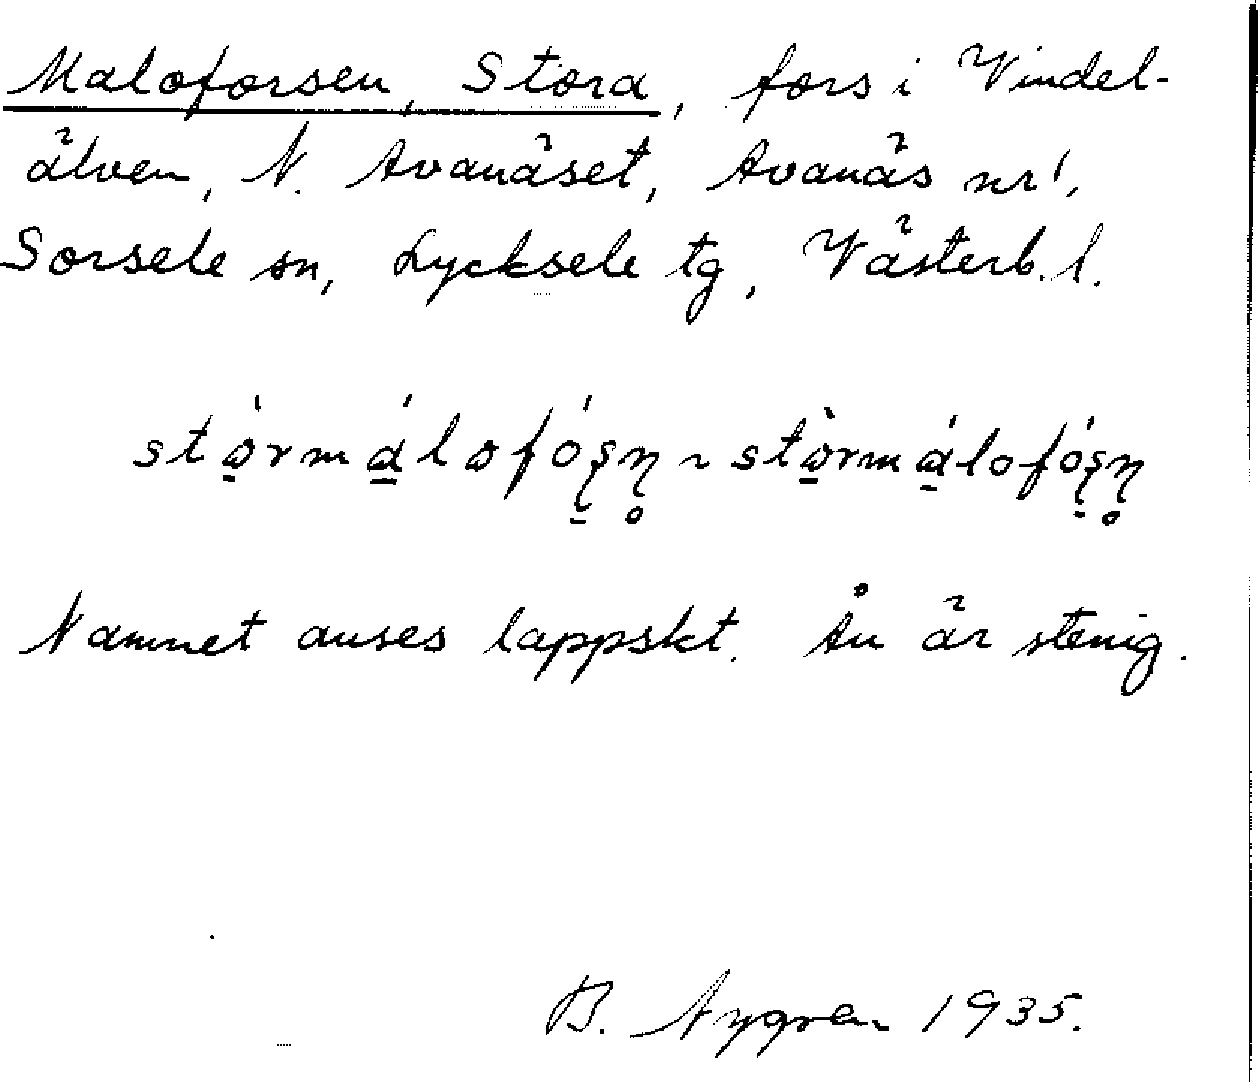 Maloforsen, Stora, fors i Vindel-
älven, N. Avanäset, Avanäs nr 1,
Sorsele sn, Lycksele tg, Västerb. l.
stòrmálofóʂɳ̥ ~ stòrmálofóʂɳ̥
Namnet anses lappskt. Ån är stenig.
B. Nygren 1935.